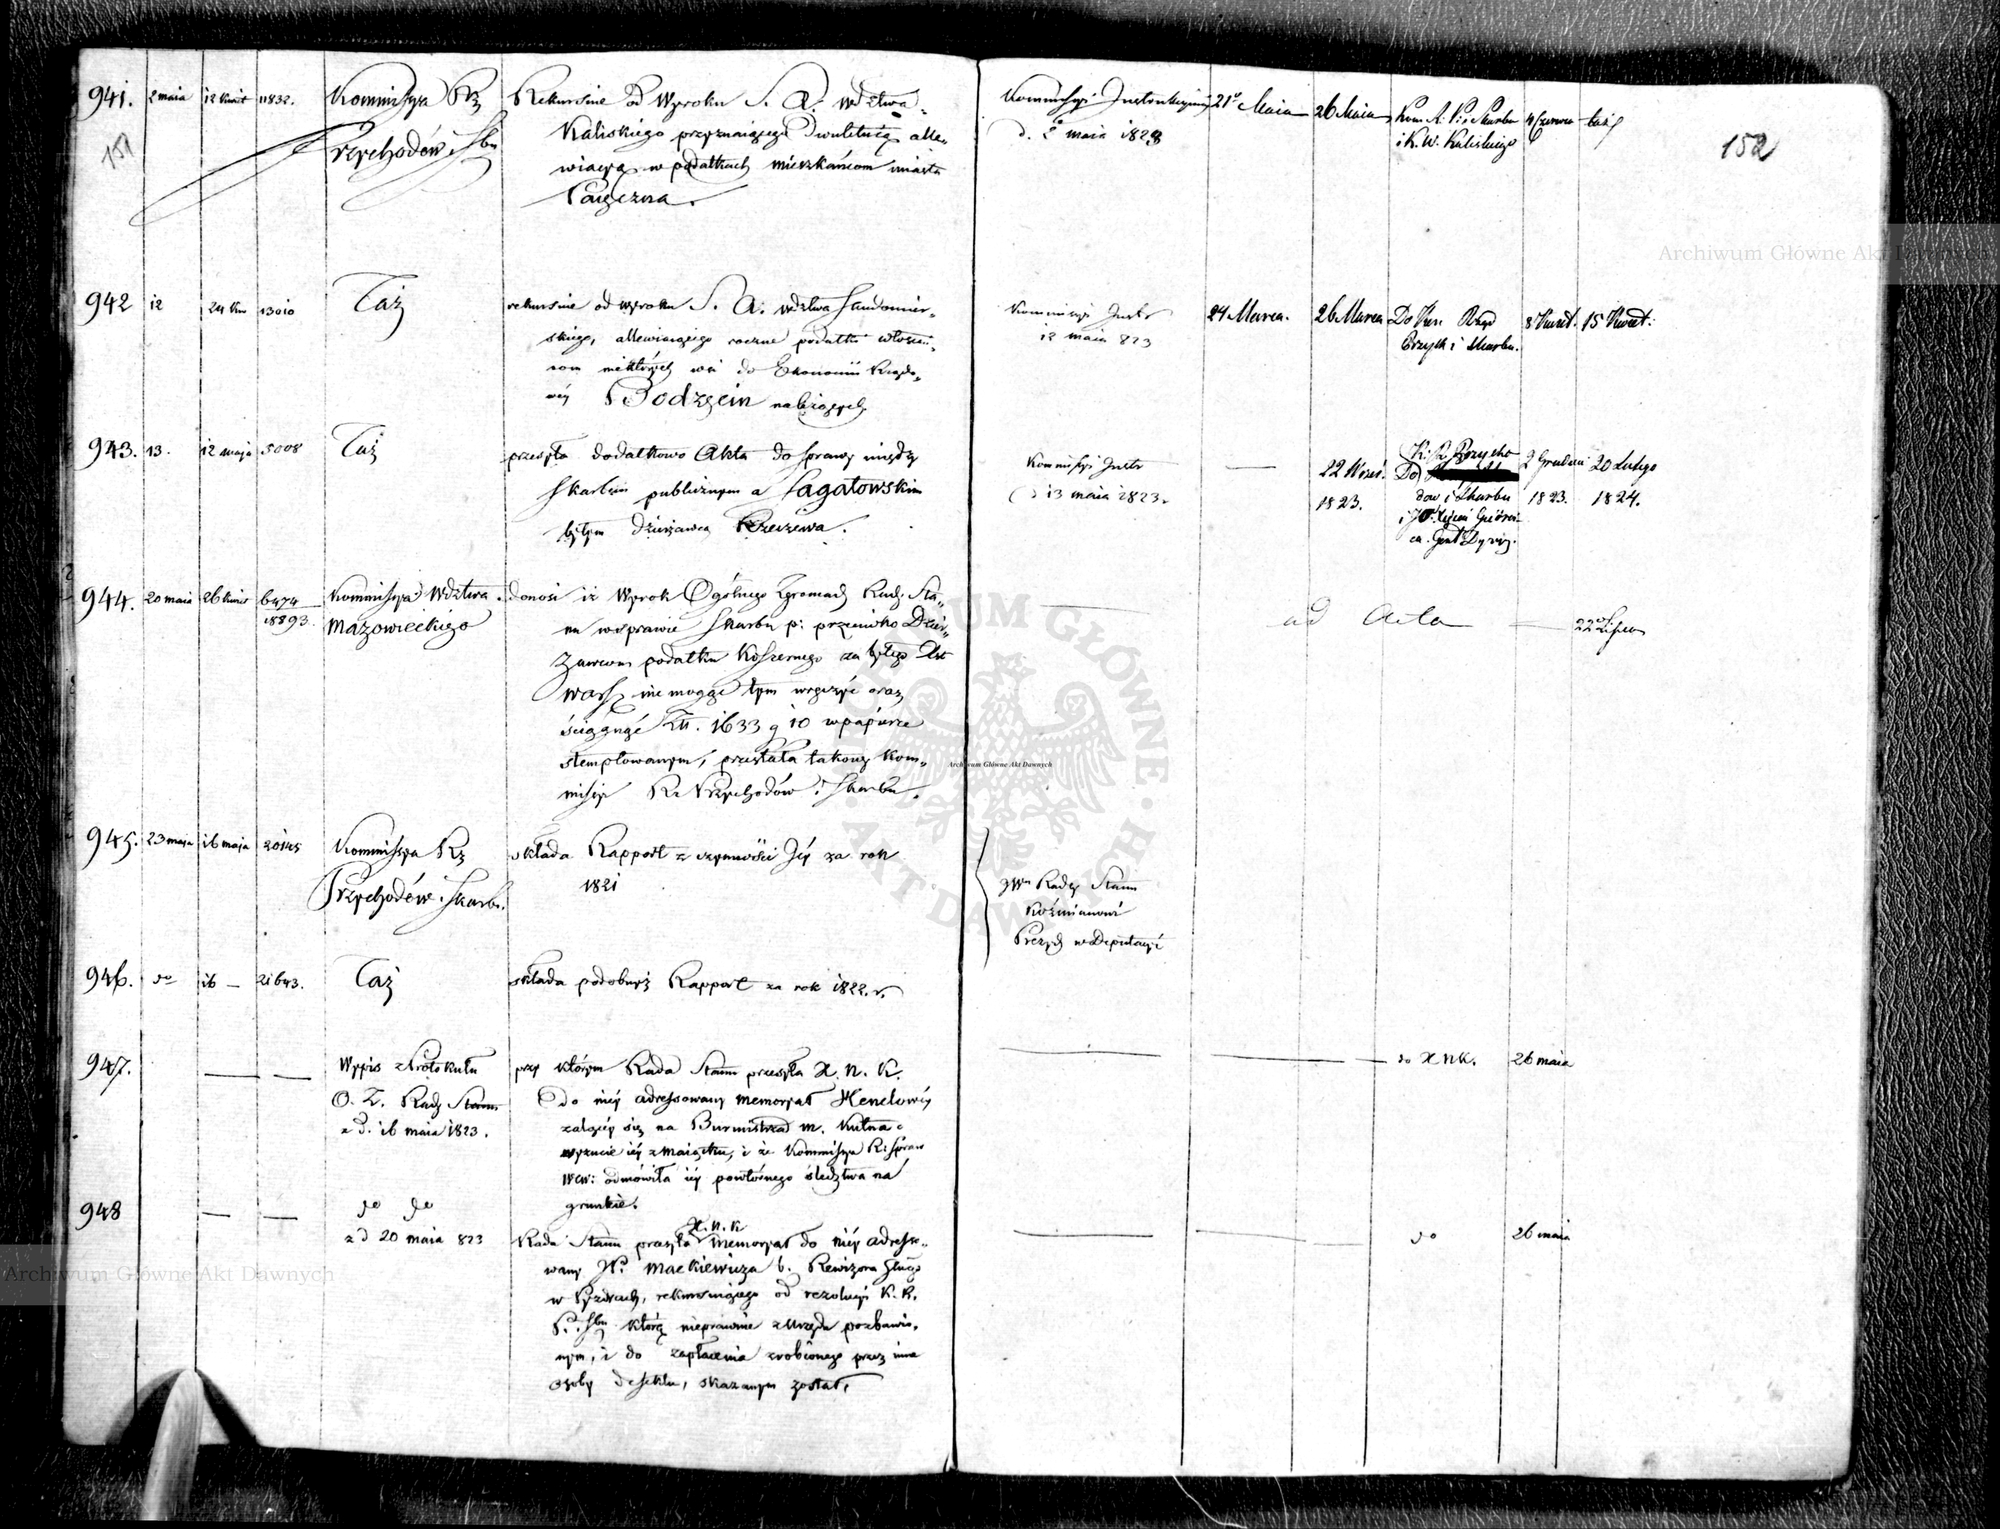 941. 2 maia 12 Kwit 11832. Kommissya Rz
Przychodów i Skbu
Rekursuie od Wyroku S. A. wdztwa
Kaliskiego przyznaiącego dwuletnią alle-
wiacyą w podatkach mieszkańcom miasta
Paięczna.
Kommissyi Instrukcyiney
d. 2 maia 1823
21 Maia 26 Maia Kom. R. P. i Skarbu 4 Czerwca
i K. W. Kaliskiego
151
152
942 12 24 Kw 13010 Taż
rekursuie od wyroku S. A. wdztwa Sandomir-
skiego, allewiaiącego roczne podatki włościa-
nom niektórych wsi do Ekonomii Rządo-
wéy Bodzęcin należących
Kommissyi Instr
12 maia 823
24 Marca. 26 Marca Do Kom Rząd
Przych i Skarbu.
8 Kwiet. 15 Kwiet.
943. 13. 12 maja 5008 Taż
przesyła dodatkowo Akta do sprawy między
Skarbem publicznym a Łagatowskim
byłym dzierżawcą Rzeczewa.
Kommissyi Instr
d 13 maia 1823.
22 Wrześ.
1823.
K. R. Przycho
Do
dow i Skarbu
2 Grudnia
1823.
20 Lutego
1824.
944. 20 maia 26 Kwiet 6474
18893
Kommissya Wdztwa
Mazowieckiego
donosi iż Wyrok Ogólnego Zgromadz Rady Sta-
nu w sprawie Skarbu p: przeciwko Dzier-
żawcom podatku Koszernego za byłego Xst
Warsz nie mogąc tym wręczyć oraz
ściągnąć Złł. 1633 g 10 w papierze
stemplowanym, przesłała takowy Kom-
missyi Rz Przychodów i Skarbu.
ad Acta
22 Lipca
945. 23 maja 16 maja 20145 Kommissya Rz
Przychodów i Skarb.
składa Rapport z czynności Jéy za rok
1821
JWu Radcy Stanu
Koźmianowi
Prezyd w Deputacyi
946. do 16 — 21643. Taż
składa podobnyż Rapport za rok 1822. r.
947. Wypis z Protokułu
O. Z. Rady Stanu
z d. 16 maia 1823.
przy którym Rada Stanu przesyła X. N. K.
do niéy adressowany memoryał Henelowéy
żalącéy się na Burmistrza m. Kutna o
wyzucie iéy z maiątku, i że Kommissya R. Spraw
Wew: odmówiła iéy powtórnego śledztwa na
gruncie.
do X N K. 26 maia
948 do do
z d 20 maia 823
X. N. K
Rada Stanu przesyła memoryał do niéy adresso-
wany JP. Mackiewicza b. Rewizora Skłgo
w Pyzdrach, rekursuiącego od rezolucyi K. R.
P. i Skbu którą nieprawnie z Urzędu pozbawio-
nym, i do zapłacenia zrobionego przez inne
osoby defektu, skazanym został.
do 26 maia
Archiwum Główne Akt Dawnych
Archiwum Główne Akt Dawnych
Archiwum Główne Akt Dawnych
ARCHIWUM GŁÓWNE AKT DAWNYCH